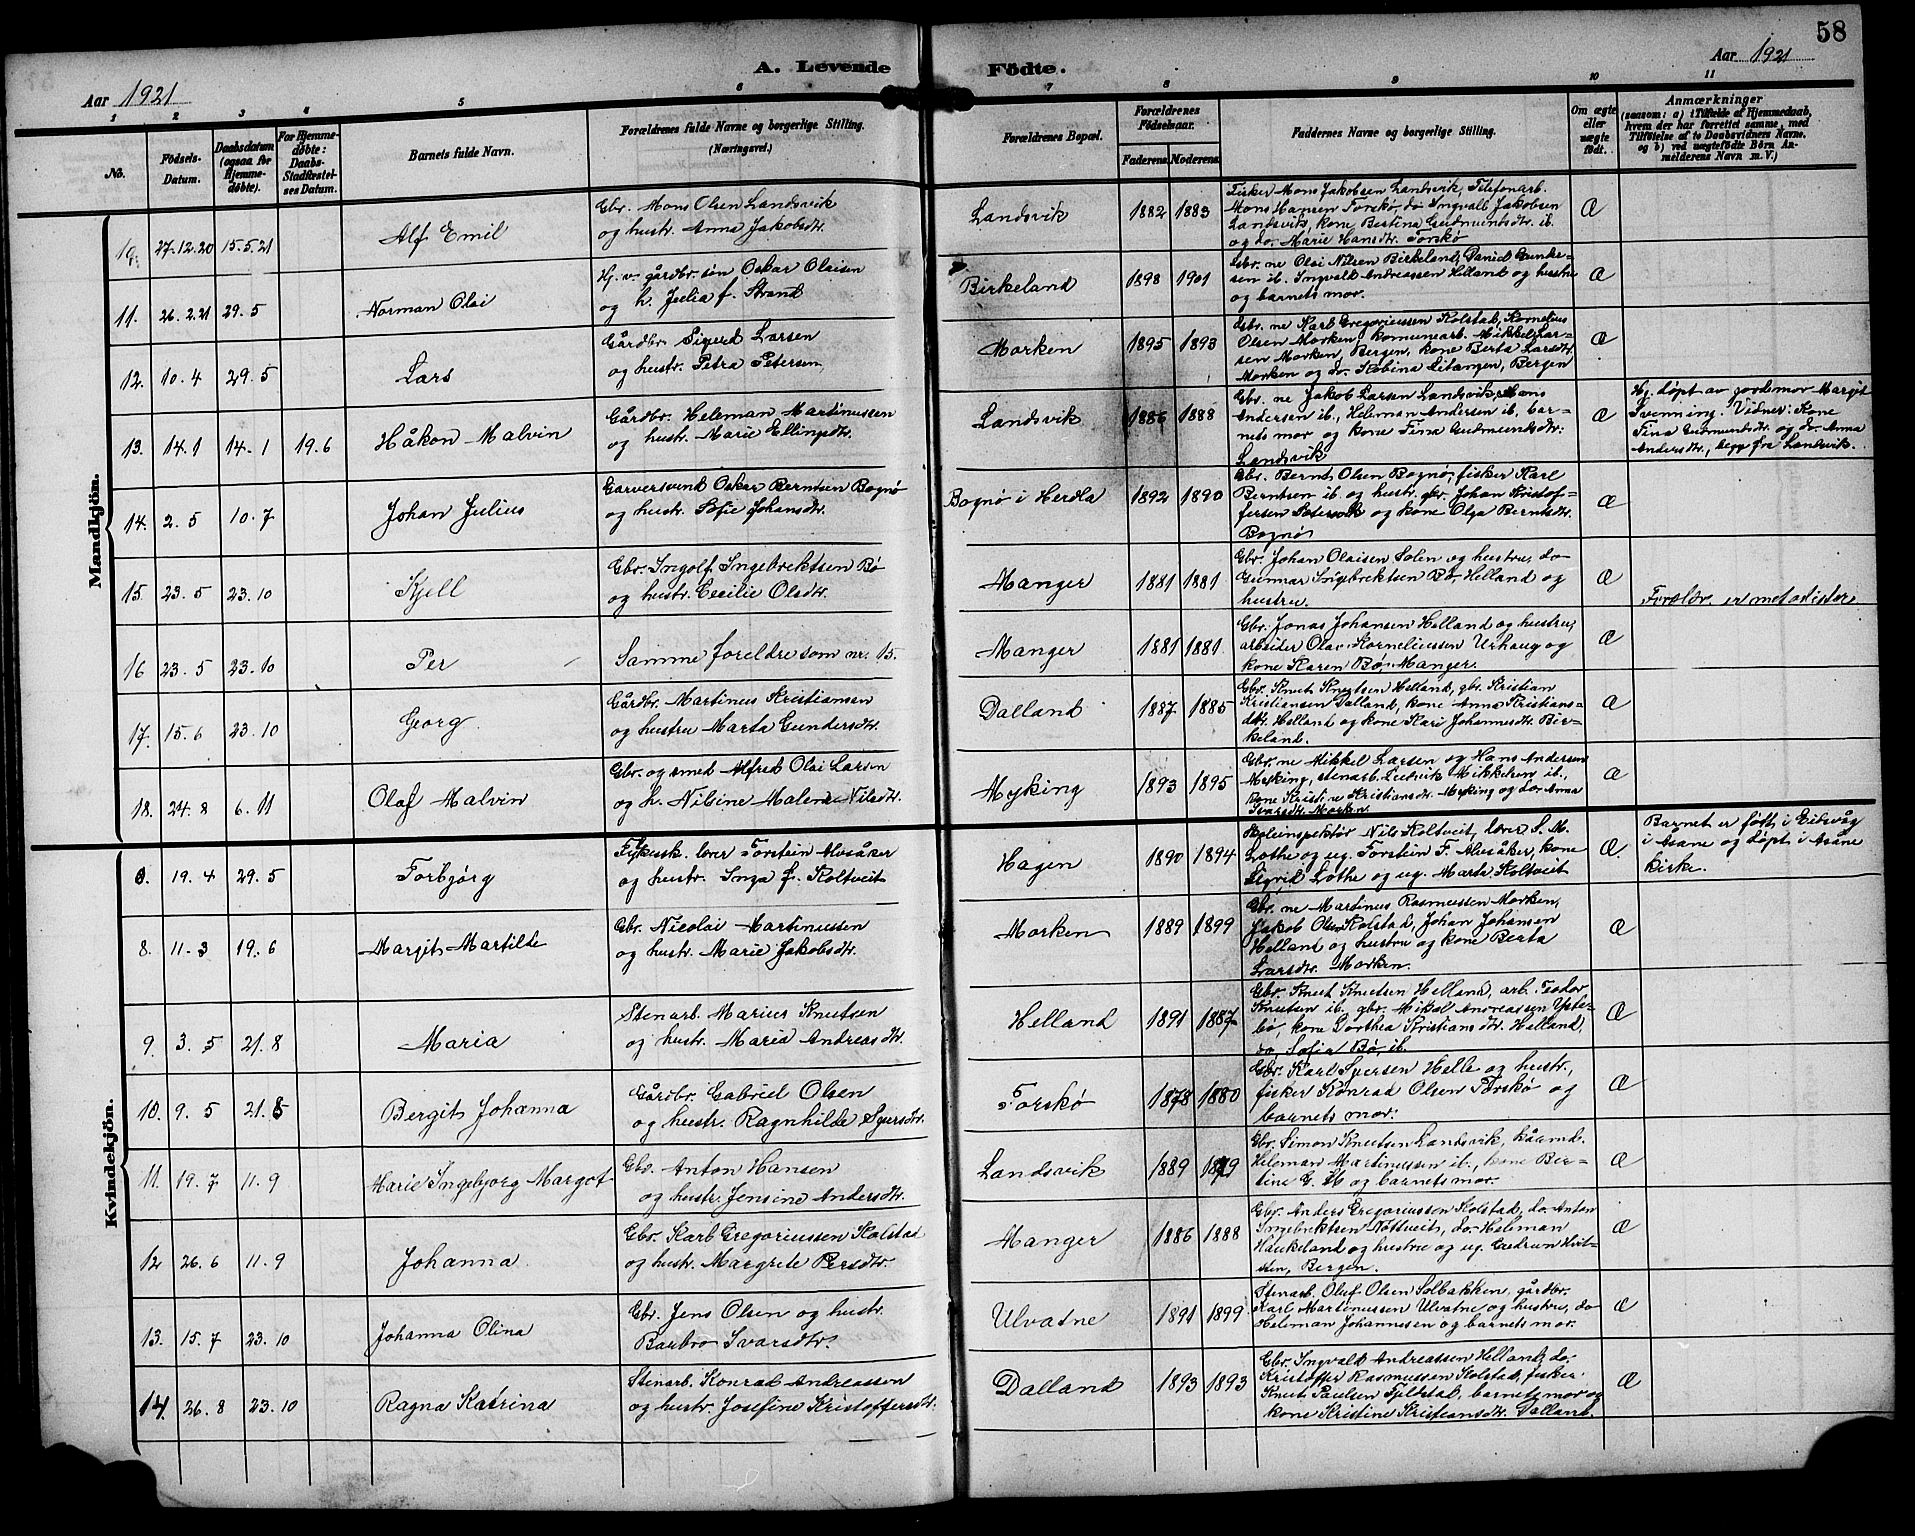 58
A. Levende Födte.
Aar 1921
Aar 1921
1 2 3 4 5 6 7 8 9 10 11
No.
Födsels-Datum.
Daabsdatum (ogsaa for Hjemme-døbte).
For Hjemme-døbte: Daabs-Stadfæstel-ses Datum.
Barnets fulde Navn.
Forældrenes fulde Navne og borgerlige Stilling. (Næringsvei.)
Forældrenes Bopæl.
Forældrenes Födselsaar.
Faderens. Moderens.
Faddernes Navne og borgerlige Stilling.
Om ægte eller uægte født.
Anmærkninger
(saasom: a) i Tilfælde af Hjemmedaab,
hvem der har forrettet samme, med
Tilføielse af to Daabsvidners Navne.
og b) ved uægtefödte Börn An-
melderens Navn m. V.)
Mandkjön.
10. 27.12.20 15.5.21 Alf Emil
Gbr. Mons Olsen Landsvik
og hustr. Anna Jakobsdtr.
Landsvik 1882 1883
Fisker Mons Jakobsen Landsvik, Telefonarb.
Mons Hansen Torskø, do Ingvall Jakobsen
Landsvik, kone Bertina Gudmundsdtr. ib.
og do. Marie Hansdtr. Torskø
Æ
11. 26.2.21 29.5 Norman Olai
Hj. v. gårdbr. søn Oskar Olaisen
og h. Julia f. Strand
Birkeland 1898 1901
Gbr. ne Olai Nilsen Birkeland, Daniel
sen ib. Ingvald Andreassen Helland og hustru
og barnets mor.
Æ
12. 10.4 29.5 Lars
Gårdbr. Sigurd Larsen
og hustr. Petra Petersen
Marken 1895 1893
Gbr. ne Karl Gregoriussen Kolstad, Kornelius
Olsen Morken, komunearb. Mikkel Lar-
sen Morken, Bergen, kone Berta Larsdtr.
Morken og do. Bergen
Æ
13. 14.1 14.1 19.6 Håkon Malvin
Gårdbr. Heleman Martinussen
og hustr. Marie Ellingsdtr.
Landsvik 1886 1888
Gbr. ne Jakob Larsen Landsvik, Hans
Andersen ib., Heleman Andersen ib., bar-
nets mor og kone Tina Gudmundsdtr.
Landsvik
Æ
Hj. døpt av jordemor Margit
Svenning. Vidner: Kone
Tina Gudmundsdtr. og do. Anna
Andersdtr., begge fra Landsvik.
14. 2.5 10.7 Johan Julius
Garversvend Oskar Berntsen Bognø
og hustr. Sofie Johansdtr.
Bognø i Herdla 1892 1890
Gbr. Bernt Olsen Bognø, fisker Karl
Berntsen ib. og hustr. gbr. Johan Kristof-
fersen og kone Olga Berntsdtr.
Bognø
Æ
15. 23.5 23.10 Kjell
Gbr. Ingolf Ingebrektsen Bø
og hustr. Cecilie Olsdtr.
Manger 1881 1881
Gbr. Johan Olaisen Solen og hustru, do
Gunnar Ingebrektsen Bø, Helland og
hustru.
Æ
Foreldr. er metodister.
16 23.5 23.10 Per
Samme foreldre som nr. 15.
Manger 1881 1881.
Gbr. Jonas Johansen Helland og hustru,
arbeider Olav Korneliussen Urhaug og
kone Karen Bø, Manger.
Æ
17. 15.6 23.10 Georg
Gårdbr. Martinus Kristiansen
og hustru Marta Gundersdtr.
Dalland 1887 1885
Gbr. Knut Knutsen Helland, gbr. Kristian
Kristiansen Dalland, kone Anna Kristians-
dtr. Helland og kone Kari Johannesdtr. Bir-
keland.
Æ
18. 24.8 6.11 Olaf Malvin
Gbr. og smed Alfred Olai Larsen
og h. Nilsine Malene Nilsdtr.
Myking 1893 1895
Gbr. ne Mikkel Larsen og Hans Andersen
Myking, stenarb. Ludvik Mikkelsen ib.,
kone Kristine Kristiansdtr. Myking og do. Anna
Ivarsdtr. Morken.
Æ
Kvindekjön.
19.4 29.5 Torbjørg
Fylkessk. lærer Torstein Alvsåker
og hustr. Inga f. Koltveit
Hagen 1890 1894
Skoleinspektør Nils Koltveit, lærer S. M.
Lothe og ug. Torstein T. Alvsåker, kone
Sigrid Lothe og ug. Marta Koltveit
Æ.
Barnet er født i Eidsvåg
i Åsane og døpt i Åsane
kirke.
8. 11.3 19.6 Margit Martilde
Gbr. Nicolai Martinussen
og hustr. Marie Jakobsdtr.
Morken 1889 1899
Gbr. ne Martinus Rasmussen Morken,
Jakob Olsen Kolstad, Johan Johansen
Helland og hustru og kone Berta
Larsdtr. Morken.
Æ
9. 3.5 21.8 Maria
Stenarb. Marius Knutsen
og hustr. Maria Andreasdtr.
Helland 1891 1887
Gbr. Knut Knutsen Helland, arb. Teodor
Knutsen ib. gbr. Mikal Andreassen Yste-
bø, kone Dorthea Kristiansdtr. Helland,
do. Sofia Bø, ib.
Æ
10. 9.5 21.8 Bergit Johanna
Gårdbr. Gabriel Olsen
og hustr. Ragnhilde Sjursdtr.
Torskø 1878 1880
Gbr. Karl Sjursen Helle og hustr.,
fisker Konrad Olsen Torskø og
barnets mor.
Æ
11. 19.7 11.9 Marie Ingebjorg Margot
Gbr. Anton Hansen
og hustr. Jensine Andersdtr.
Landsvik 1889
Gbr. Simon Knutsen Landsvik, båtmd.
Heleman Martinussen ib., kone Ber-
tine G. og barnets mor.
Æ
12 26.6 11.9 Johanna
Gbr. Karl Gregoriussen Kolstad
og hustr. Margrete Persdtr.
Manger 1886 1888
Gbr. Anders Gregoriussen Kolstad, do. Anton
Ingebrektsen Nöttveit, do. Helman
Haukeland og hustru og ug. Gudrun Hvit-
sten, Bergen.
Æ
13. 15.7 23.10 Johanna Olina
Gbr. Jens Olsen og hustr.
Barbro Ivarsdtr.
Ulvatne 1891 1899
Stenarb. Oluf Olsen Solbakken, gårdbr.
Karl Martinussen Ulvatne og hustru, do
Heleman Johannesen og barnets mor.
Æ
14. 26.8 23.10 Ragna Katrina
Stenarb. Konrad Andreassen
og hustr. Josefine Kristoffersdtr.
Dalland 1893 1893
Gbr. Ingvald Andreassen Helland, do.
Kristoffer Rasmussen Kolstad, fisker
Knut Paulsen Fjelstad, barnets mor og
kone Kristine Kristiansdtr. Dalland.
Æ